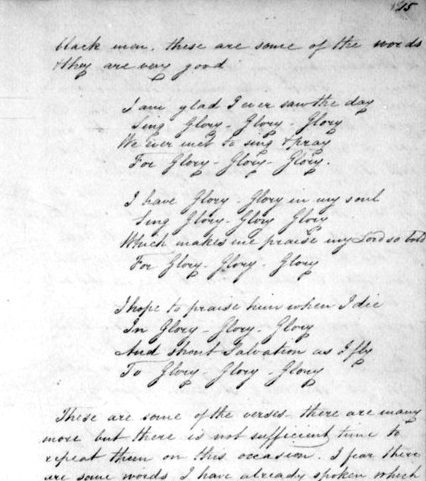 15
black man. these are some of the words
& they are very good
I am glad I ever saw the day
Sing Glory - Glory - Glory
We Ever met to sing & pray
For Glory - Glory - Glory.
I have Glory - Glory in my soul
Sing Glory - Glory Glory
Which makes me praise my Lord so bold
For Glory - Glory - Glory
I hope to praise him when I die
In Glory - Glory - Glory
And shout Salvation as I fly
To Glory - Glory - Glory
These are some of the verses there are many
more but there is not sufficient time to
repeat them on this occasion. I fear there
are some words I have already spoken which